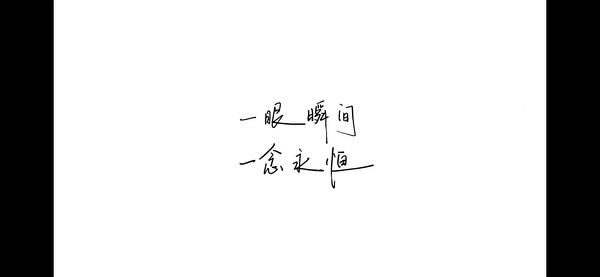 一眼瞬间
一念永恒